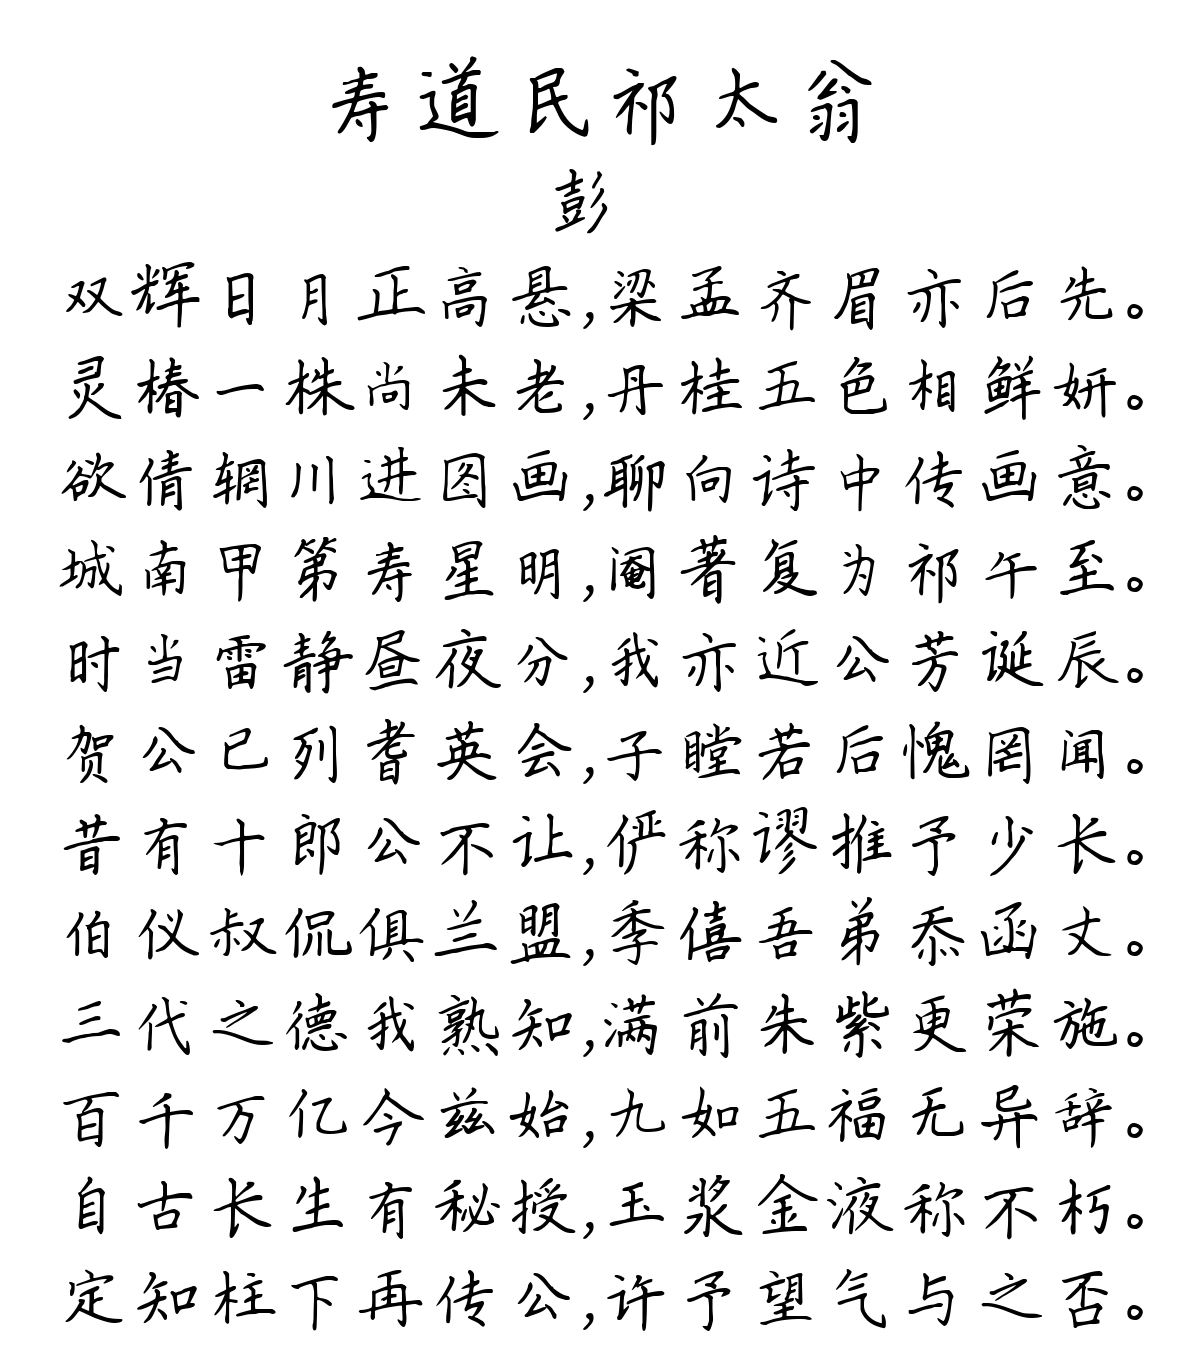 寿道民祁太翁
彭
双辉日月正高悬,梁孟齐眉亦后先。
灵椿一株尚未老,丹桂五色相鲜妍。
欲倩辋川进图画,聊向诗中传画意。
城南甲第寿星明,阉著复为祁午至。
时当雷静昼夜分,我亦近公芳诞辰。
贺公已列耆英会,子瞠若后愧罔闻。
昔有十郎公不让,俨称谬推予少长。
伯仪叔侃俱兰盟,季僖吾弟忝函丈。
三代之德我熟知,满前朱紫更荣施。
百千万亿今兹始,九如五福无异辞。
自古长生有秘授,玉浆金液称不朽。
定知柱下再传公,许予望气与之否。